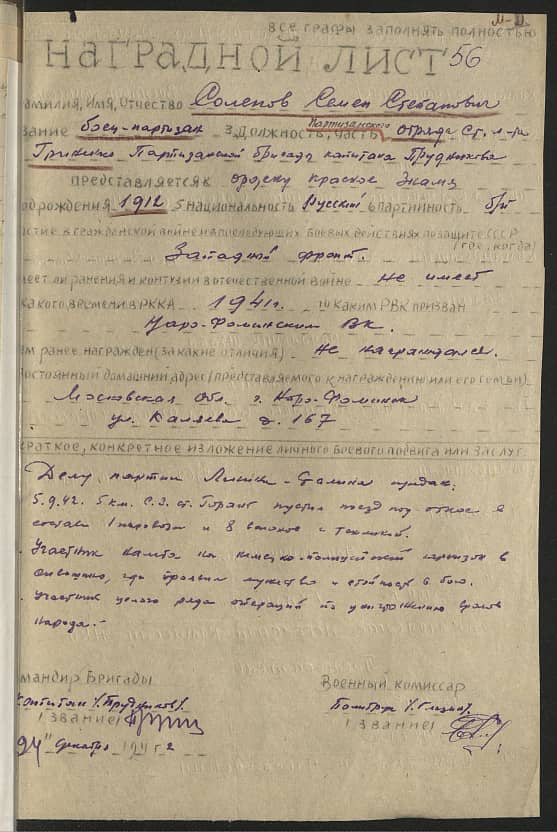 ВСЕ ГРАФЫ ЗАПОЛНЯТЬ ПОЛНОСТЬЮ
НАГРАДНОЙ ЛИСТ 56
амилия, Имя, Отчество Соленов Семен Степанович
вание боец-партизан 3. Должность, часть партизанского отряда ст. л-та
Гриненко Партизанской бригады капитана Прудникова
представляется к ордену красное Знамя
од рождения 1912 5 национальность Русский 6 партийность б/п
стие в гражданской войне и последующих боевых действиях по защите СССР
(где, когда)
Западный фронт.
меет ли ранения и контузии в отечественной войне не имеет
какого времени в РККА 1941 г. 10 каким РВК призван
Наро-Фоминским ВК.
ем ранее награжден (за какие отличия) не награждался.
Постоянный домашний адрес (представляемого к награждению или его семьи)
Московская обл. г. Наро-Фоминск
ул. Каляева д. 167
краткое, конкретное изложение личного боевого подвига или заслуг.
Делу партии Ленина-Сталина предан.
5.9.42. 5 км. С.З. ст. пустил поезд под откос в
составе 1 паровоза и 8 вагонов с техникой.
Участник налета на немецко-полицейский гарнизон в
где проявил мужество и стойкость в бою.
Участник целого ряда операций по уничтожению врагов
народа.
мандир Бригады Военный комиссар
Капитан /Прудников/ Политрук
(звание) (звание)
24" декабря 1942 г